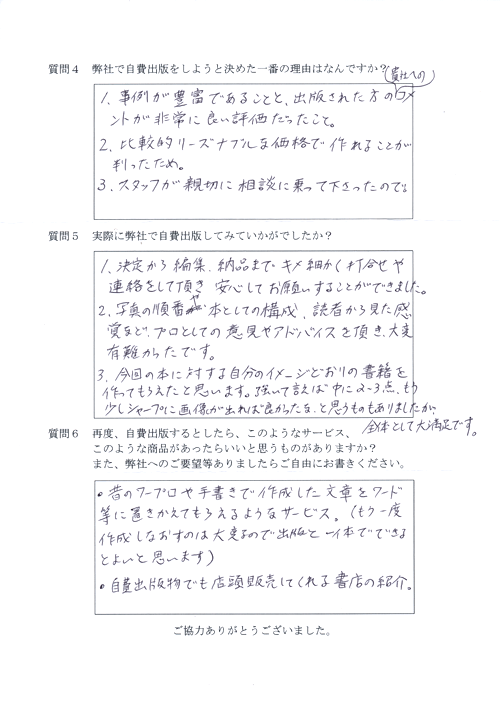 質問4 弊社で自費出版をしようと決めた一番の理由はなんですか?
(貴社への)
1. 事例が豊富であることと、出版された方のコメ
ントが非常に良い評価だったこと。
2. 比較的リーズナブルな価格で作れることが
判ったため。
3. スタッフが親切に相談に乗って下さったので。
質問5 実際に弊社で自費出版してみていかがでしたか?
1. 決定から編集、納品まで、キメ細かく打合せや
連絡をして頂き、安心してお願いすることができました。
2. 写真の順番や本としての構成、読者から見た感
覚など、プロとしての意見やアドバイスを頂き、大変
有難かったです。
3. 今回の本に対する自分のイメージどおりの書籍を
作ってもらえたと思います。強いて言えば中に2~3点、もう
少しシャープに画像が出れば良かったな、と思うものもありましたが、
全体として大満足です。
質問6 再度、自費出版するとしたら、このようなサービス、
このような商品があったらいいと思うものがありますか?
また、弊社へのご要望等ありましたらご自由にお書きください。
• 昔のワープロや手書きで作成した文章をワード
等に置きかえてもらえるようなサービス。(もう一度
作成しなおすのは大変なので出版と一体でできる
とよいと思います)
• 自費出版物でも店頭販売してくれる書店の紹介。
ご協力ありがとうございました。